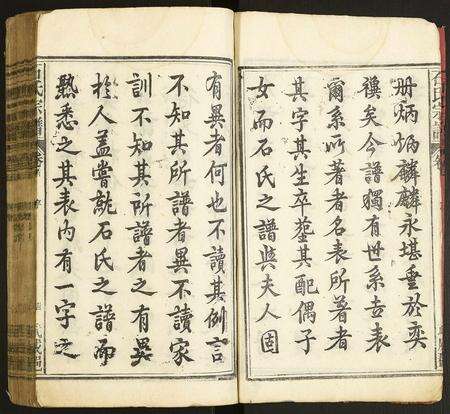 石氏宗譜
册炳炳麟麟永堪垂於奕
禩矣今譜獨有世系表
爾系所著者名表所著者
其字其生卒塟其配偶子
女而石氏之譜與夫人固
有異者何也不讀其例言
不知其所譜者異不讀家
訓不知其所譜者之有異
於人蓋嘗就石氏之譜而
熟悉之其表內有一字之
石氏宗譜 卷首 序